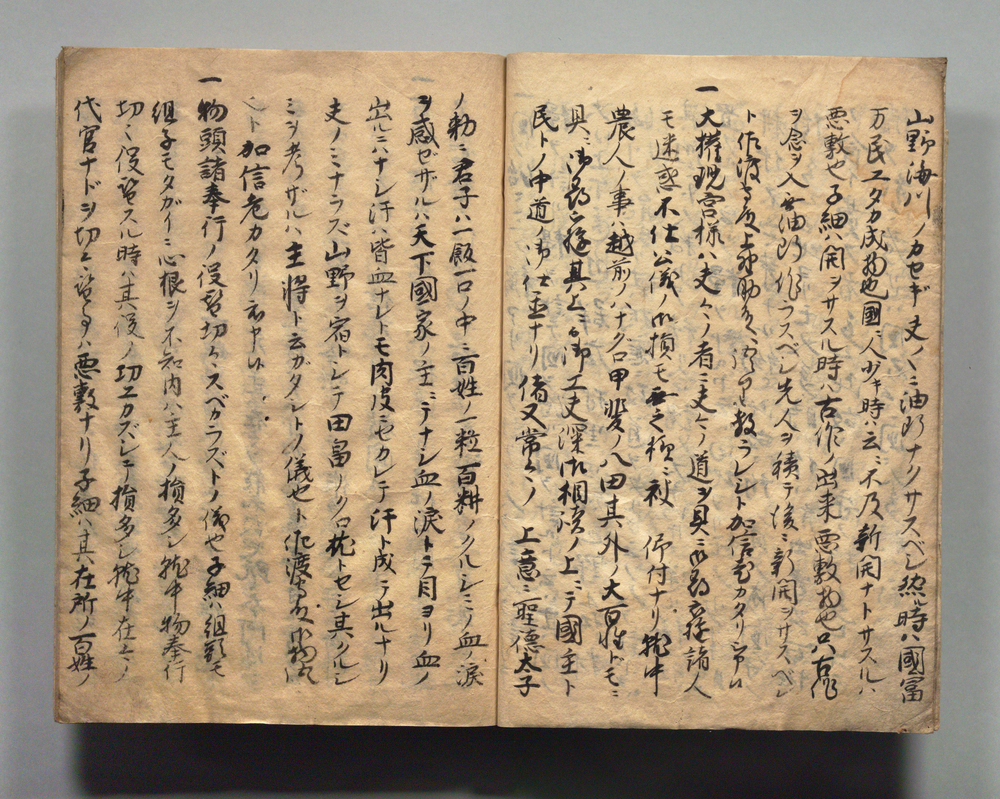 山野海川ノカセギ丈ノ〱ニ油断ナクサスベシ然時ハ國冨
万民ユタカ成物也國ニ人少キ時ハ云ニ不及新開ナトサスルハ
悪敷也子細ハ開ヲサスル時ハ古作ノ出来悪敷物也只古作
ヲ念ヲ入無油断作ラスベシ先人ヲ積テ後ニ新開ヲサスベシ
ト作渡
一大権現宮様ハ丈ケノ者ニ丈ケノ道ヲ具ニ諸人
モ迷惑不仕公儀ノ御損モ無之様ニ被 仰付ナリ就中
農人ノ事ハ越前ノハナクロ甲斐ノ八田其外ノ大百姓ドモニ
具ニ御尋被遊其上ニ而御工夫深ク御相談ノ上ニテ國主ト
民トノ中道ノ御仕置ナリ偖又常々ノ 上意ニ聖徳太子
ノ勅ニ君子ハ一飯一口ノ中ニ百姓ノ一粒百耕ノクルシミノ血ノ涙
ヲ感ゼザルハ天下國家ノ主ニテナシ血ノ涙トテ目ヨリ血ノ
出ルニハナシ汗ハ皆血ナレトモ肉皮ニセカレテ汗ト成テ出ルナリ
夫ノミナラズ山野ヲ宿トシテ田畠ノクロ枕トセシ其クルシ
ミヲ考ザルハ主将ト云ガタシトノ儀也ト作渡
ト加信老カタリ
一物頭諸奉行ノ役替切々スベカラズトノ儀也子細ハ組頭モ
組子モタガイニ心根ヲ不知内ハ主人ノ損多シ就中物奉行
切々役替スル時ハ其役ノ切エカズシテ損多シ就中在々ノ
代官ナドヲ切々替ル事ハ悪敷ナリ子細ハ其在所ノ百姓ノ